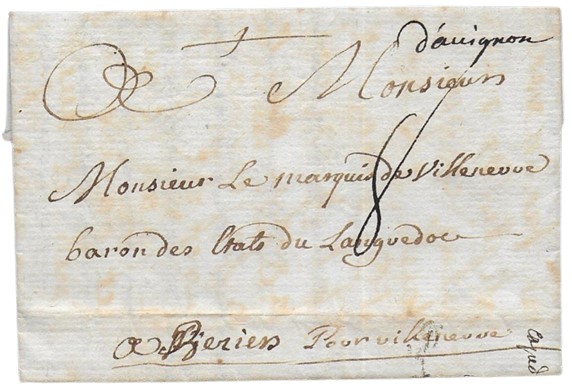 d'auignon
A Monsieur
Monsieur Le marquis de Villeneuve
8
baron des Etats du Languedoc
a Beziers Pour villeneuve